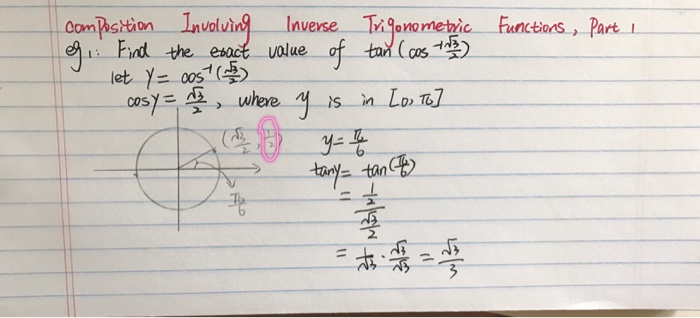 Composition Involving Inverse Trigonometric Functions, Part 1
eg 1: Find the exact value of tan(cos⁻¹ √3/2)
let y = cos⁻¹(√3/2)
cosy = √3/2, where y is in [0, π]
(√3/2, 1/2)
π/6
y = π/6
tany = tan(π/6)
= 1/2 / √3/2
= 1/√3 · √3/√3 = √3/3